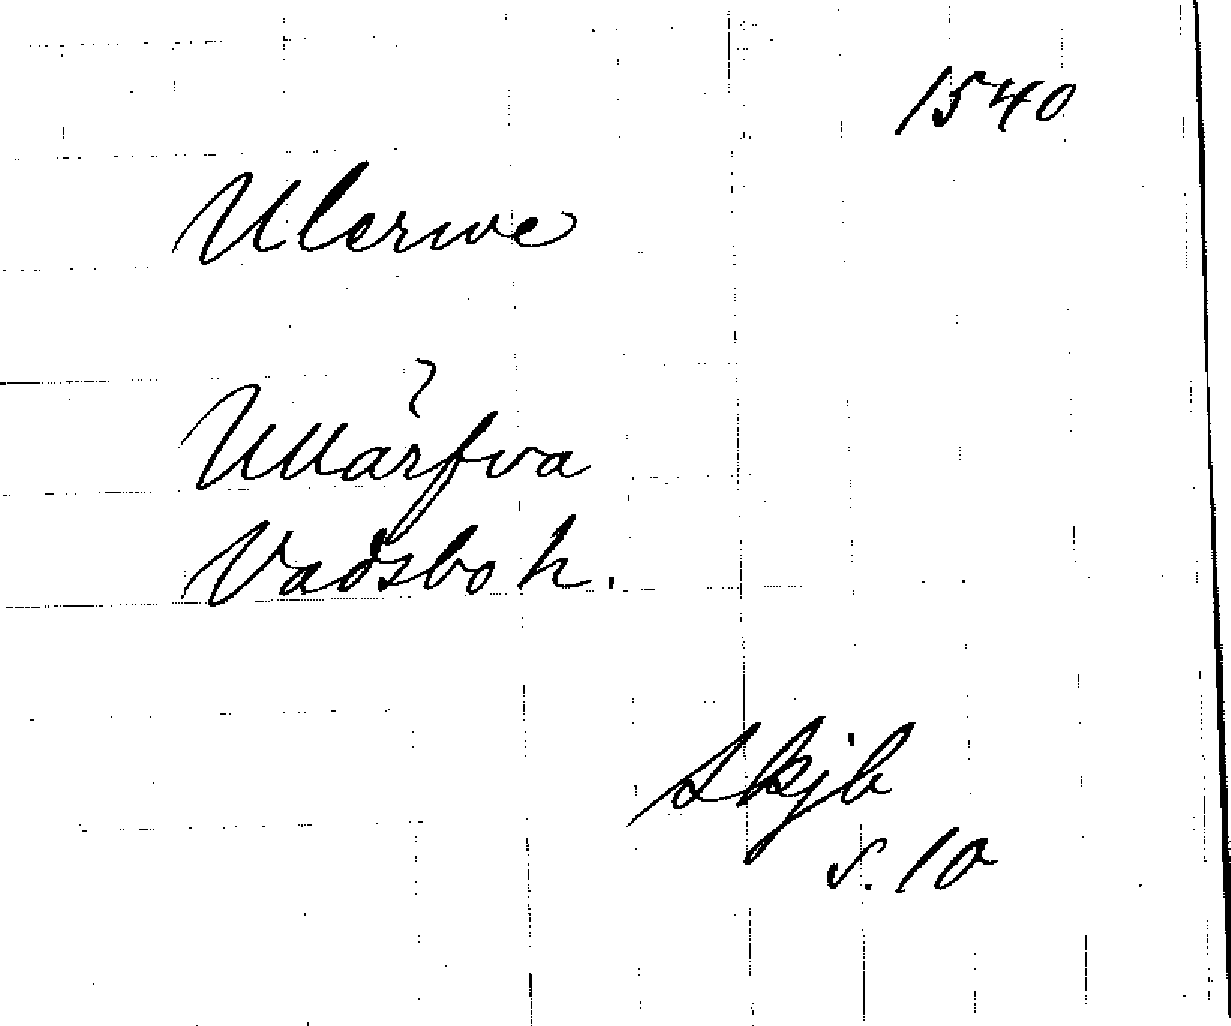 1540
Ulerwe
?
Ullärfva
Vadsbo h.
Skjb
s. 10